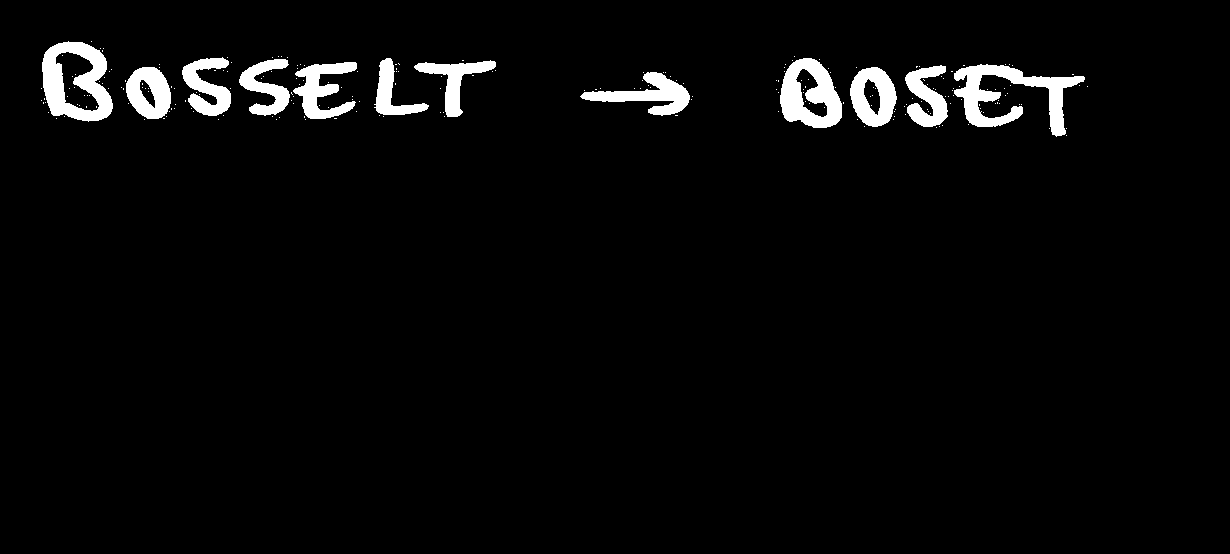 BOSSELT → BOSET